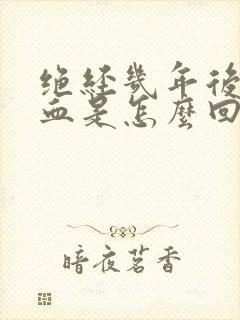 绝经几年後
血是怎麼回
暗夜茗香